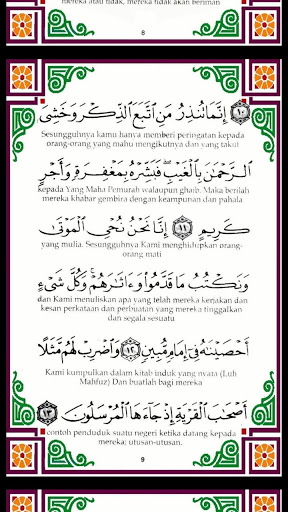 mereka atau tidak, mereka tidak akan beriman
8
١٠ إِنَّمَا تُنذِرُ مَنِ اتَّبَعَ الذِّكْرَ وَخَشِيَ
Sesungguhnya kamu hanya memberi peringatan kepada
orang-orang yang mahu mengikutnya dan yang takut
الرَّحْمَٰنَ بِالْغَيْبِ ۖ فَبَشِّرْهُ بِمَغْفِرَةٍ وَأَجْرٍ
kepada Yang Maha Pemurah walaupun ghaib. Maka berilah
mereka khabar gembira dengan keampunan dan pahala
كَرِيمٍ ١١ إِنَّا نَحْنُ نُحْيِ الْمَوْتَىٰ
yang mulia. Sesungguhnya Kami menghidupkan orang-
orang mati
وَنَكْتُبُ مَا قَدَّمُوا وَءَاثَارَهُمْ ۚ وَكُلَّ شَيْءٍ
dan Kami menuliskan apa yang telah mereka kerjakan dan
kesan perkataan dan perbuatan yang mereka tinggalkan
dan segala sesuatu
أَحْصَيْنَاهُ فِي إِمَامٍ مُّبِينٍ ١٢ وَاضْرِبْ لَهُم مَّثَلًا
Kami kumpulkan dalam kitab induk yang nyata (Luh
Mahfuz) Dan buatlah bagi mereka
أَصْحَابَ الْقَرْيَةِ إِذْ جَاءَهَا الْمُرْسَلُونَ ١٣
contoh penduduk suatu negeri ketika datang kepada
mereka; utusan-utusan.
9